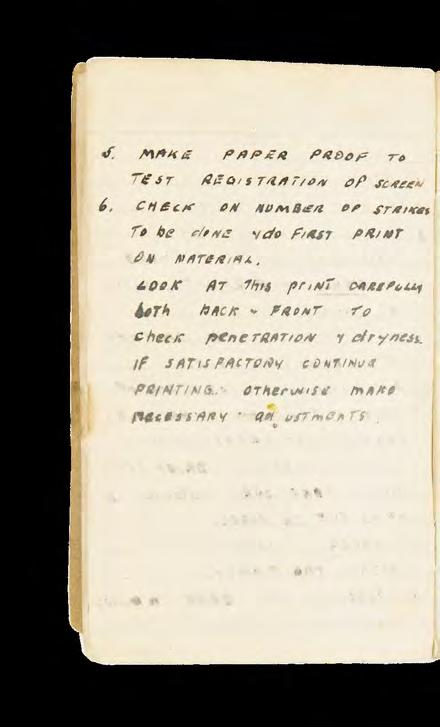 5. MAKE PAPER PROOF TO
TEST REGISTRATION OF SCREEN
6. CHECK ON NUMBER OF STRIKES
To be done & do FIRST PRINT
ON MATERIAL.
LOOK AT This print CAREFULLY
both BACK & FRONT TO
check peneTRATION & dryness.
IF SATISFACTORY CONTINUE
PRINTING. otherwise MAKE
NECESSARY